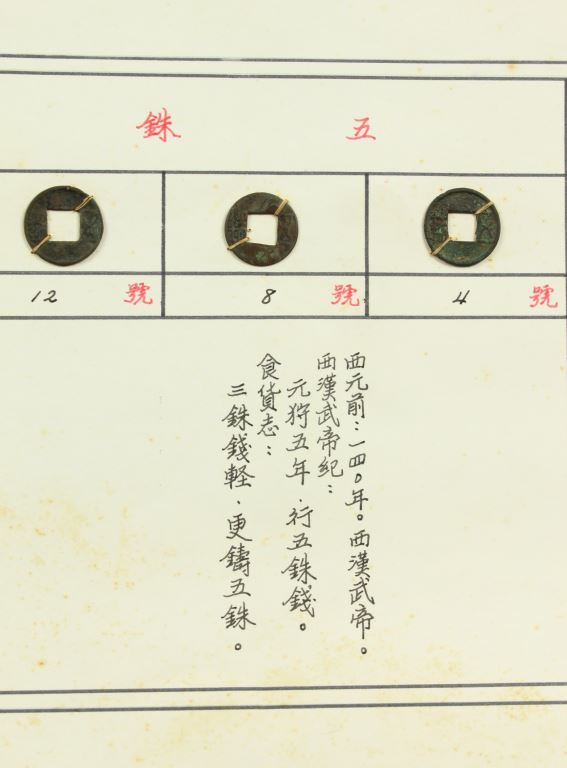 五銖
號 4
號 8
號 12
西元前：一四〇年。西漢武帝。
西漢武帝紀：
元狩五年．行五銖錢。
食貨志：
三銖錢軽．更鑄五銖。